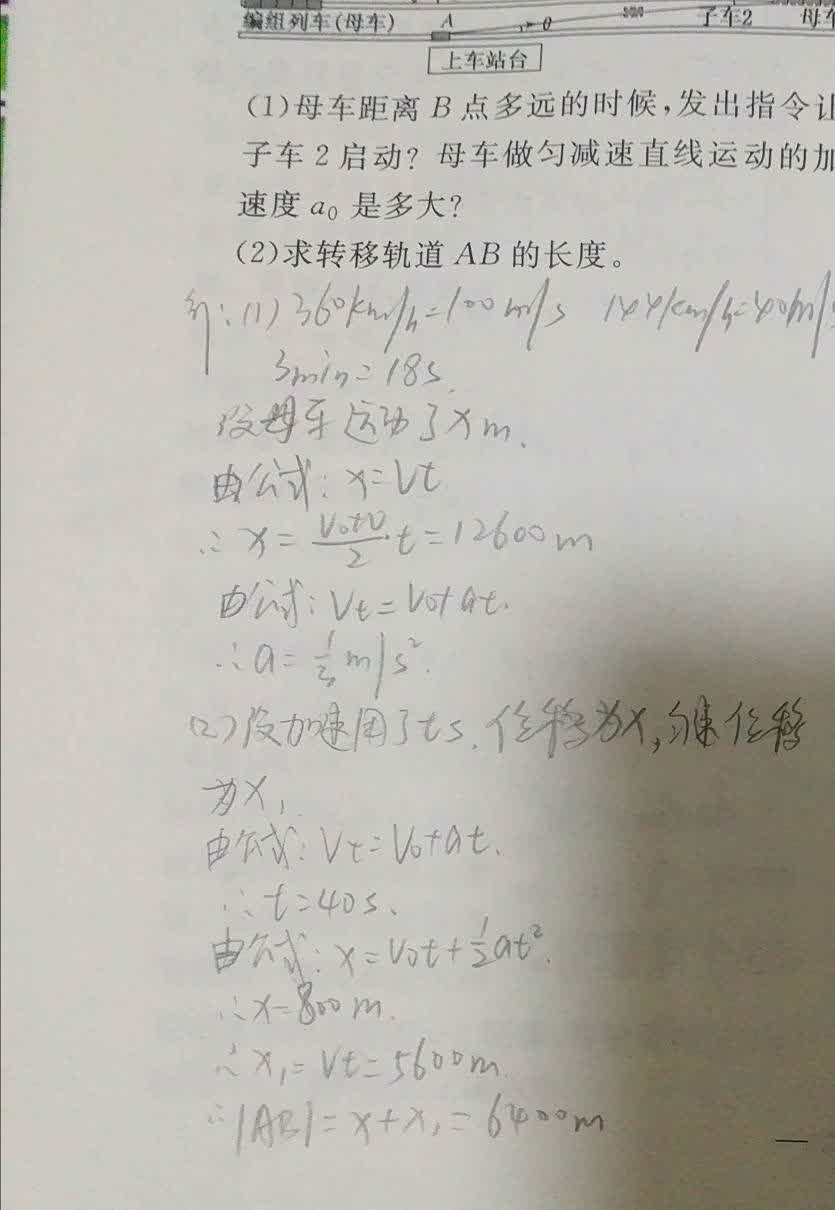 编组列车(母车) A θ 子车2 母车
上车站台
(1)母车距离 B 点多远的时候,发出指令让
子车 2 启动? 母车做匀减速直线运动的加
速度 a₀ 是多大?
(2)求转移轨道 AB 的长度。
(1) 360km/h=100m/s 144km/h=40m/s
3min=18s.
设母车运动了xm.
由公式: x=Vt
∴ x= (V₀+V)/2 ·t=12600m
由公式: Vt=V₀+at.
∴a=1/3 m/s².
(2)设加速用了ts.位移为x,匀速位移
为x₁.
由公式: Vt=V₀+at.
∴t=40s.
由公式: x=V₀t+1/2at².
∴x=800m.
∴x₁=Vt=5600m
∴|AB|=x+x₁=6400m